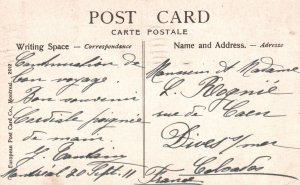 POST CARD
CARTE POSTALE
Writing Space — Correspondance
Name and Address. — Adresse
European Post Card Co., Montreal, 2052
Continuation de
bon voyage.
Bon souvenir
Cordiale poignée
de main.
Montreal 20 Sept. 11
Monsieur et Madame
L. Regnié
rue de Caen
Dives s/mer
Calvados
France